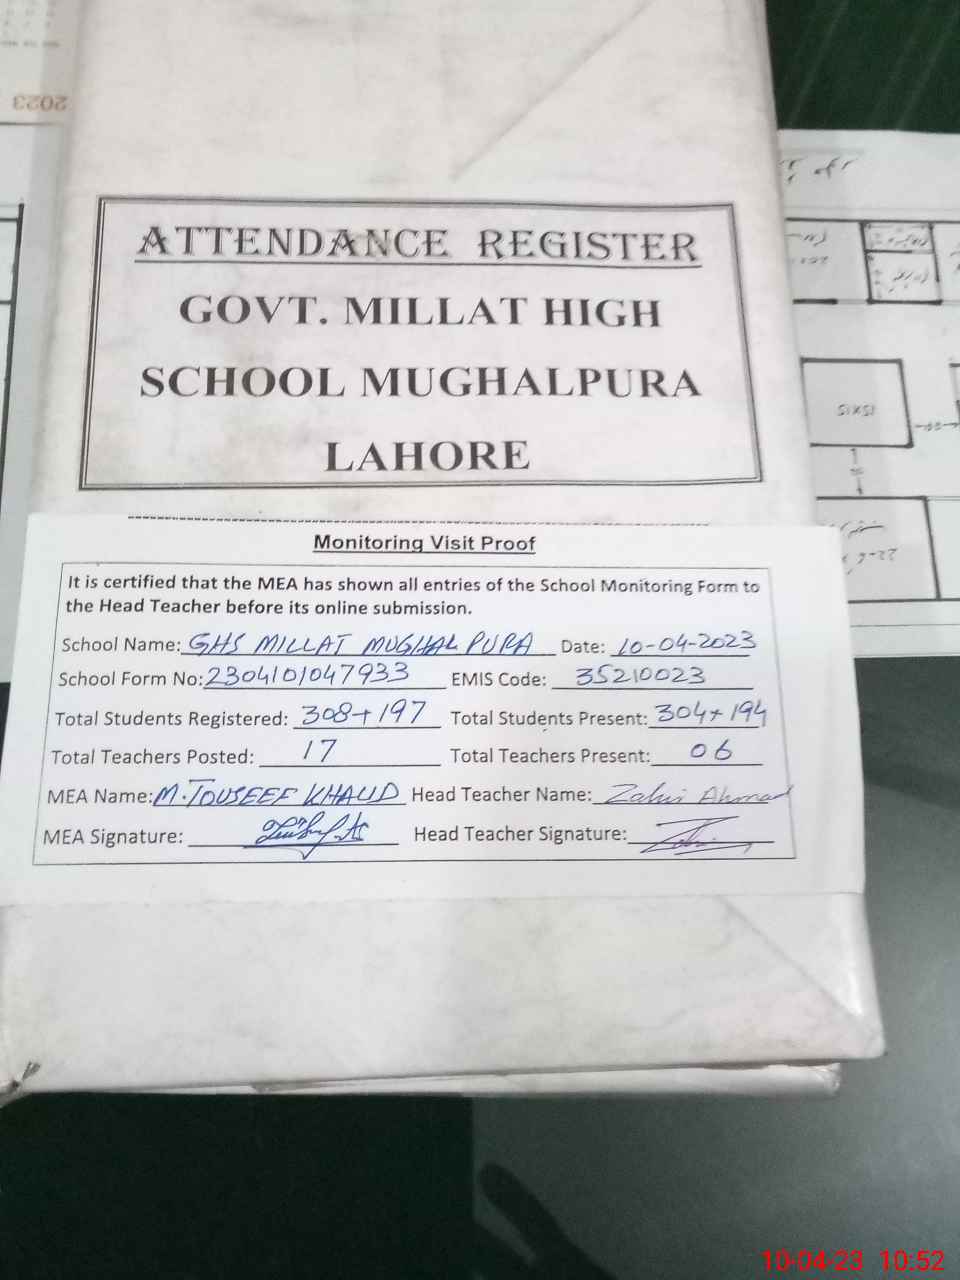 2023
ATTENDANCE REGISTER
GOVT. MILLAT HIGH
SCHOOL MUGHALPURA
LAHORE
15X15
Monitoring Visit Proof
It is certified that the MEA has shown all entries of the School Monitoring Form to
the Head Teacher before its online submission.
School Name: GHS MILLAT MUGHALPURA Date: 10-04-2023
School Form No: 2304101047933 EMIS Code: 35210023
Total Students Registered: 308+197 Total Students Present: 304+194
Total Teachers Posted: 17 Total Teachers Present: 06
MEA Name: M.TOUSEEF KHALID Head Teacher Name: Zahir Ahmad
MEA Signature: Head Teacher Signature:
10-04-23 10:52